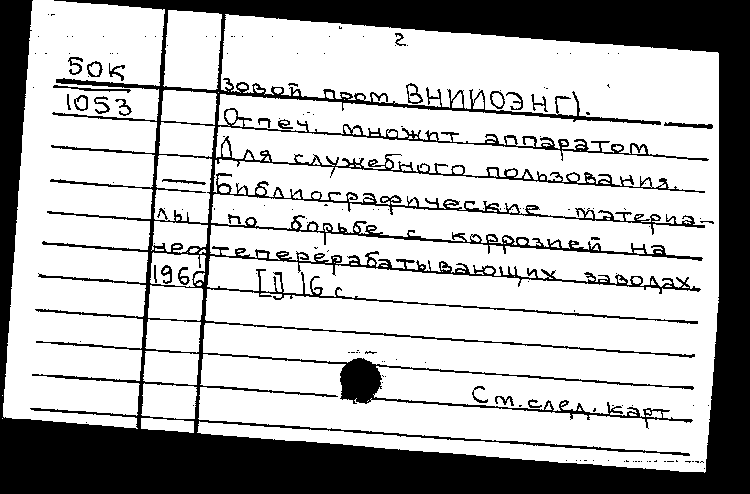 2
50К
1053
зовой пром. ВНИИОЭНГ).
Отпеч. множит. аппаратом
Для служебного пользования.
— Библиографические материа-
лы по борьбе с коррозией на
нефтеперерабатывающих заводах.
1966. [I]. 16 с.
См. след. карт.